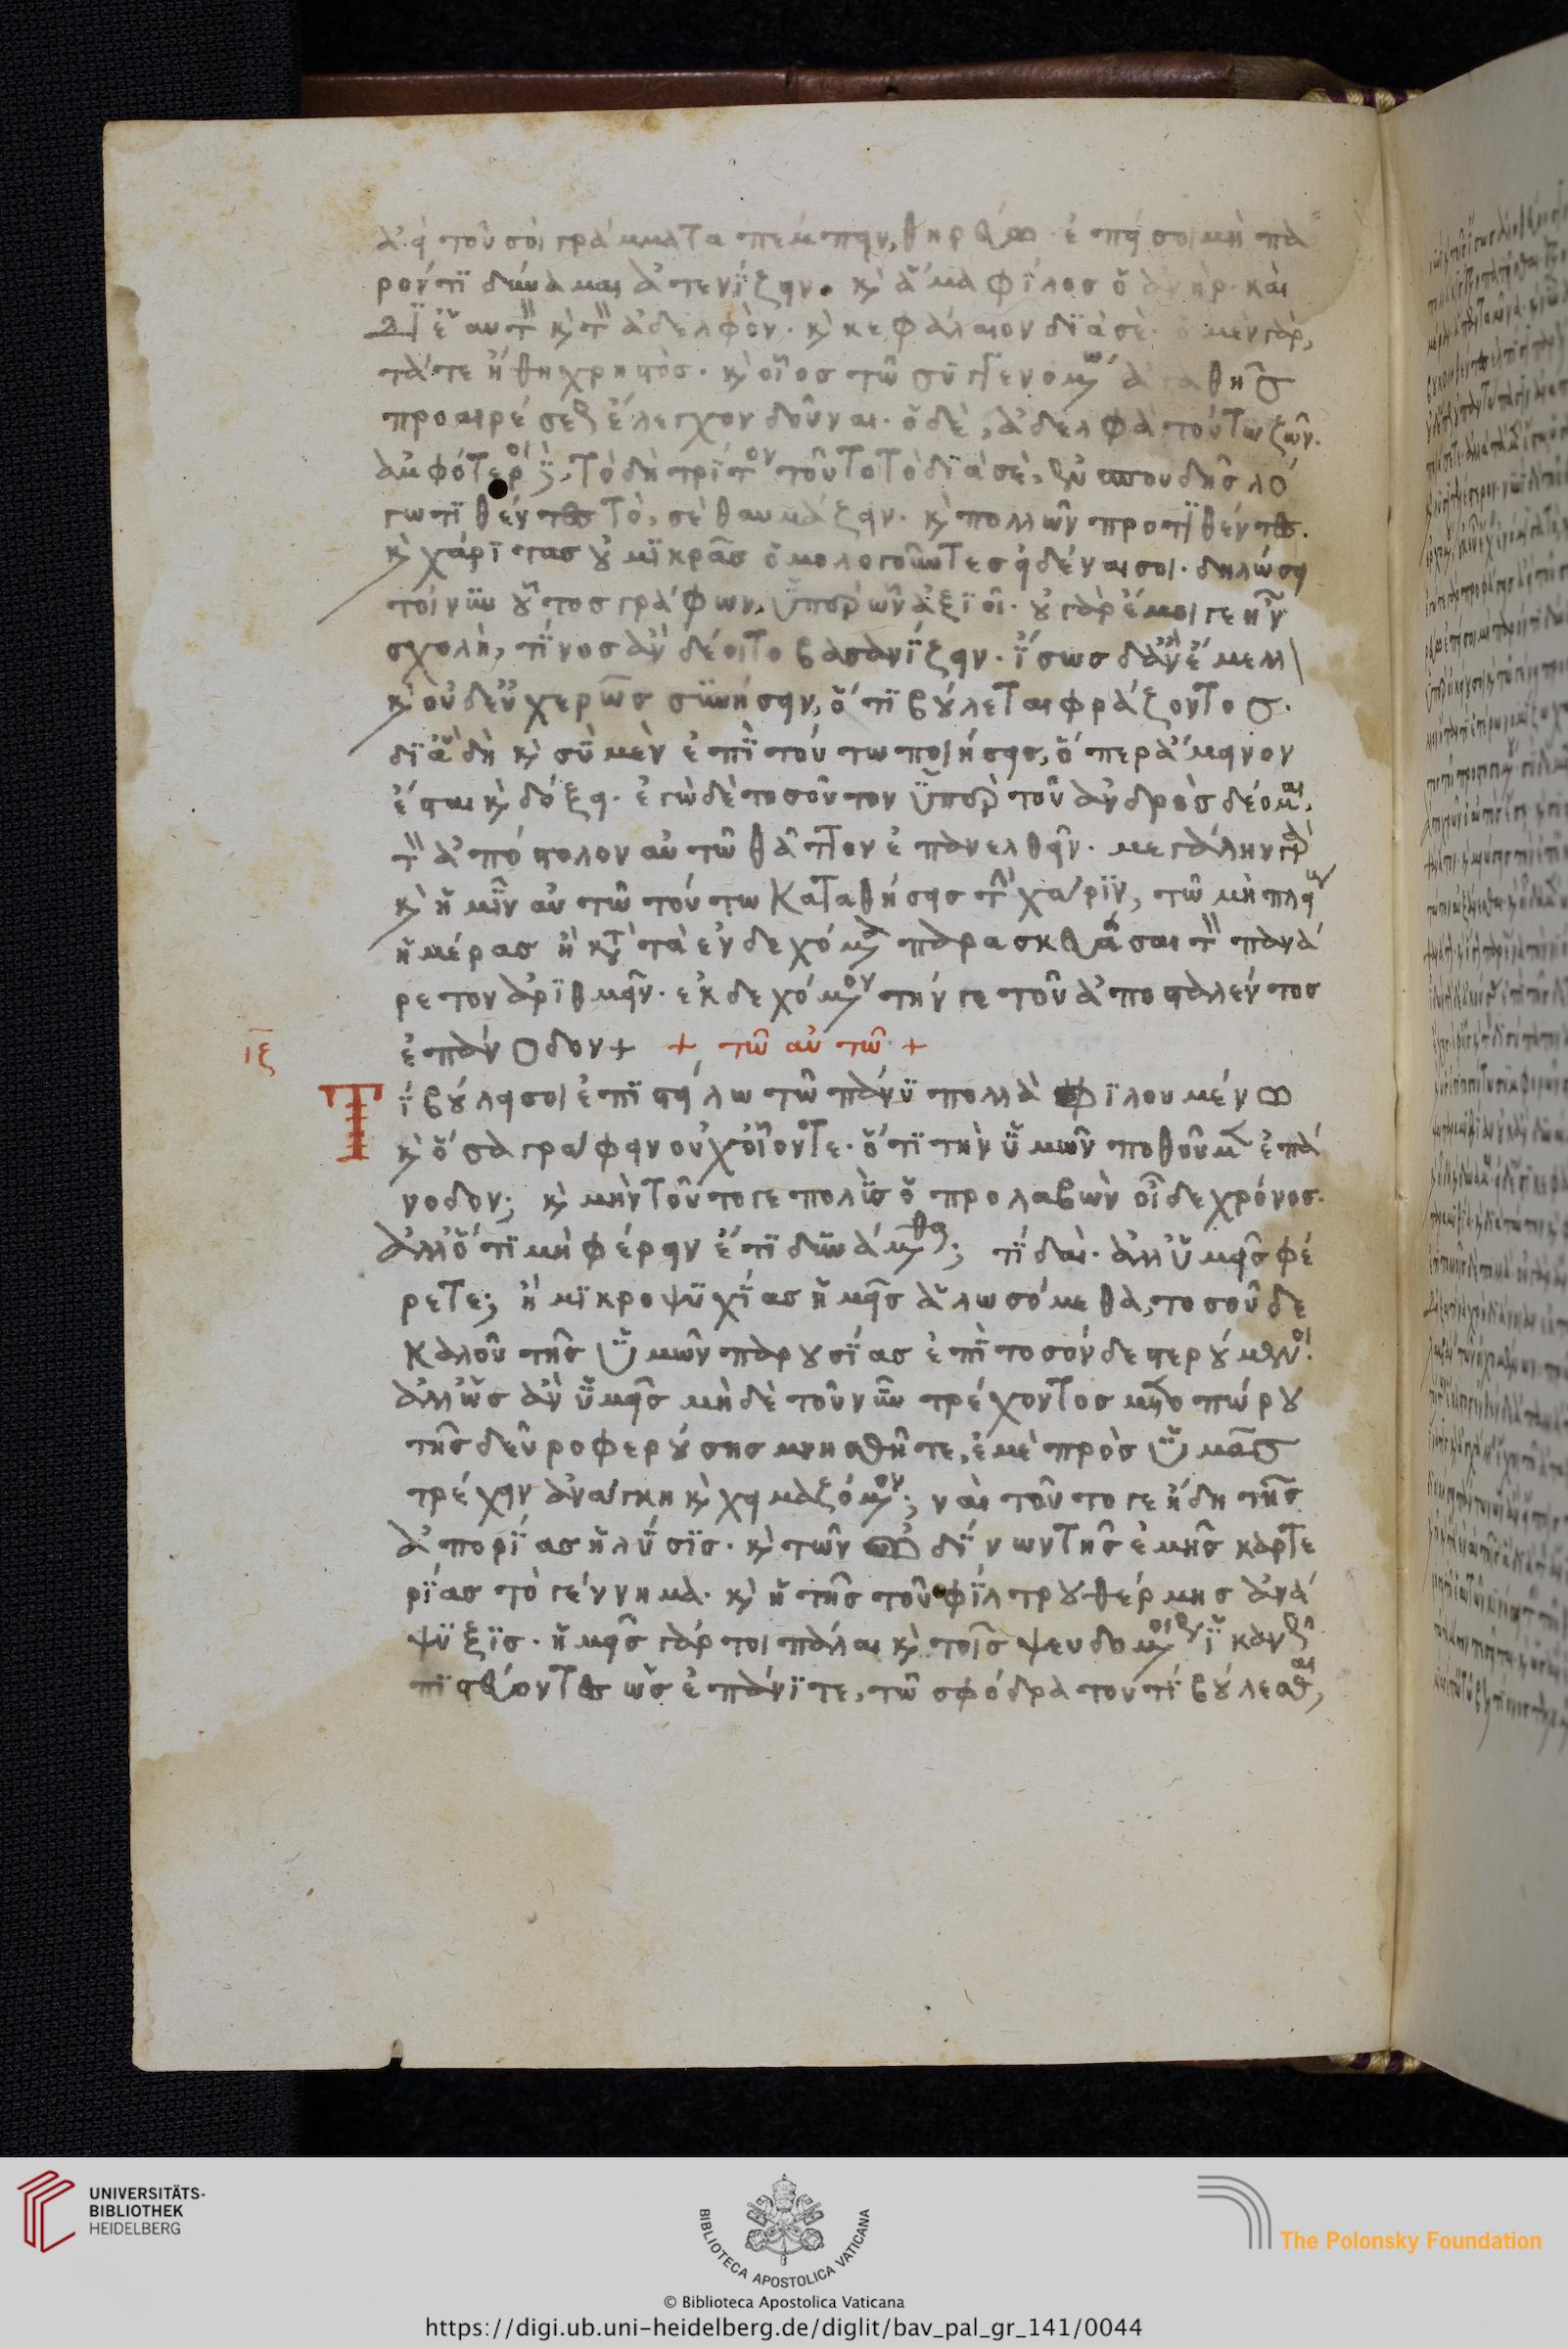 ἀεί του σοι γράμματα πέμπειν, θηρεύω· ἐπεί σοι μὴ πα
ρόντι δύναμαι ἀτενίζειν. κ̀ ἅμα φίλος ὁ ἀνὴρ· και
ἑαυτὸν κ̀ τὸν ἀδελφόν· κ̀ κεφάλαιον διὰ σέ· ὁ μὲν γὰρ,
τά τε ἤθη χρηστός· κ̀ οἷος τῶ συγγενομένω ἀγαθῆς
προαιρέσεως ἔλεγχον δοῦναι· ὁ δὲ, ἀδελφὰ τούτω ζῶν.
ἀμφότεροι δὲ, τὸ δὴ τρίτον τοῦτο τὸ διὰ σὲ, ἐν σπουδῆς λό
γω τιθέντες τὸ, σὲ θαυμάζειν· κ̀ πολλῶν προτιθέντες.
κ̀ χάριτας οὐ μικρᾶς ὁμολογοῦντες εἰδέναι σοι· δηλώσει
τοίνυν οὗτος γράφων, ὑπὲρ ὧν ἀξιοῖ· οὐ γὰρ ἔμοιγε ἦν
σχολὴ, τίνος ἂν δέοιτο βασανίζειν· ἴσως δ' ἂν ἔμελλ
κ̀ οὐδὲν χερῶς συνήσειν, ὅτι βούλεται φράζοντος·
διὰ δὴ κ̀ σὺ μὲν ἐπὶ τούτω ποιήσεις, ὅπερ ἄμεινον
ἔσται κ̀ δόξει· ἐγὼ δὲ τοσοῦτον ὑπὲρ τοῦ ἀνδρὸς δέομαι,
τὸν ἀπόστολον αὐτῶ θᾶττον ἐπανελθεῖν· μεγάλην γὰρ
κ̀ ἡμῖν αὐτῶ τούτω καταθήσεις τὴν χάριν, τῶ μὴ πλείους
ἡμέρας ἢ κατὰ τὰ ἐνδεχόμενα παρασκευάσαι τὸν πανά
ρετον ἀριθμεῖν· ἐκδεχόμενον τήν γε τοῦ ἀποσταλέντος
ἐπάνοδον+ + τῶ αὐτῶ +
ιξ
Τί βούλει σοι ἐπιστείλω τῶ πάνυ πολλὰ φιλουμένω
κ̀ ὅσα γράφειν οὐχ οἷόν τε· ὅτι τὴν ὑμῶν ποθοῦμεν ἐπά
νοδον; κ̀ μὴν τοῦτό γε πολὺς ὁ προλαβὼν οἶδε χρόνος·
ἀλλ' ὅτι μὴ φέρειν ἔτι δυνάμεθα; τί δαί· ἀλλ' ὑμεῖς φέ
ρετε; ἢ μικροψυχίας ἡμεῖς ἁλωσόμεθα, τοσοῦδε
καλοῦ τῆς ὑμῶν παρουσίας ἐπὶ τοσόνδε στερούμενοι·
ἀλλ' ὡς ἂν ὑμεῖς μηδὲ τοῦ νῦν τρέχοντος μετοπώρου
τῆς δεῦρο φερούσης μνησθῆτε, ἐμὲ πρὸς ὑμᾶς
τρέχειν ἀνάγκη κ̀ χειμαζόμενον; ναι τοῦτό γε ἤδη τῆς
ἀπορίας ἡ λύσις· κ̀ τῶν ὠδίνων τῆς ἐμῆς καρτε
ρίας τὸ γέννημα· κ̀ ἡ τῆς τοῦ φίλτρου θέρμης ἀνά
ψυξις· ἡμεῖς γάρ τοι πάλαι κ̀ τοῖς ψευδομένοις ἱκανῶς
πιστεύοντες ὡς ἐπάνιτε, τῶ σφόδρα τουτὶ βούλεσθαι,
UNIVERSITÄTS-
BIBLIOTHEK
HEIDELBERG
BIBLIOTECA APOSTOLICA VATICANA
The Polonsky Foundation
© Biblioteca Apostolica Vaticana
https://digi.ub.uni-heidelberg.de/diglit/bav_pal_gr_141/0044